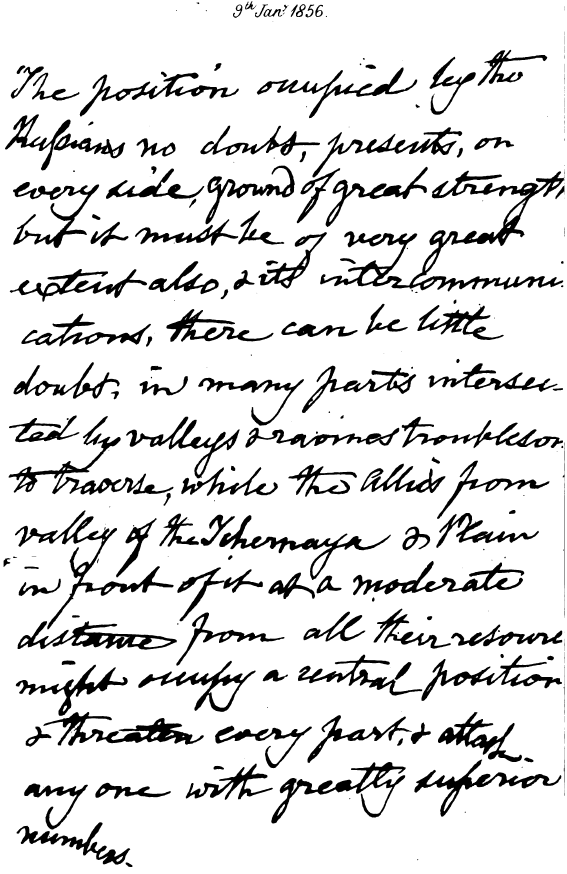 9th Jany 1856.
"The position occupied by the
Russians no doubt, presents, on
every side, ground of great strength
but it must be of very great
extent also, & its intercommuni
cations, there can be little
doubt, in many parts intersec-
ted by valleys & ravines troublesom
to traverse, while the Allies from
valley of the Tchernaya & Plain
in front of it at a moderate
distance from all their resource
might occupy a central position
& threaten every part, & attack
any one with greatly superior
numbers.